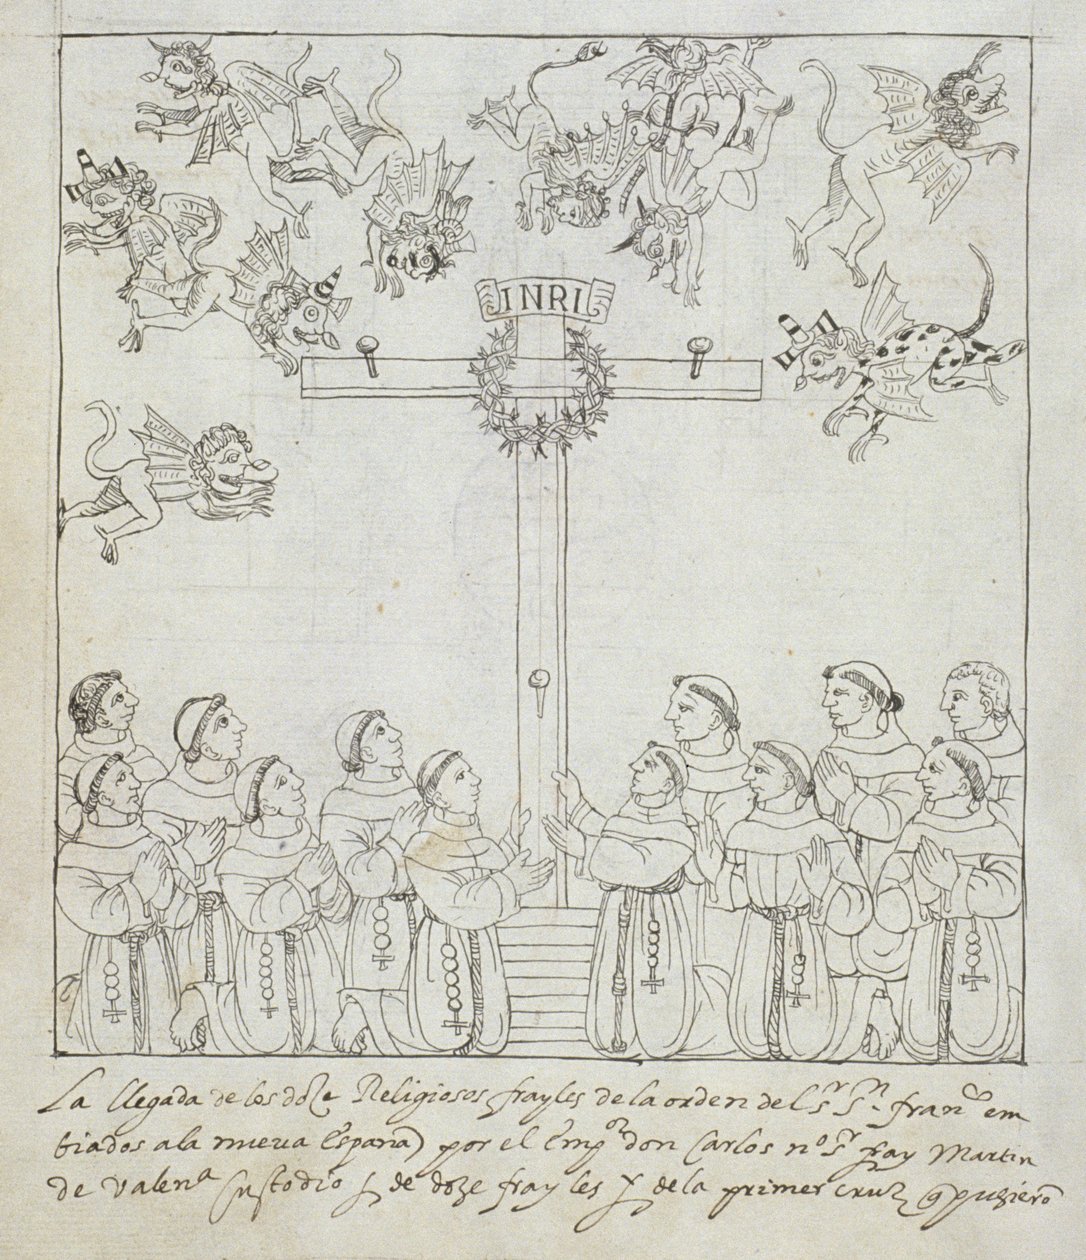 INRI
La llegada de los doze Religiosos frayles de la orden del sʳ Sⁿ. franᶜᵒ em
biados a la nueva España por el empᵒʳ don Carlos nᵒ Sʳ fray Martin
de valenᵃ Custodio de doze frayles y de la primer cruz q pusierõ